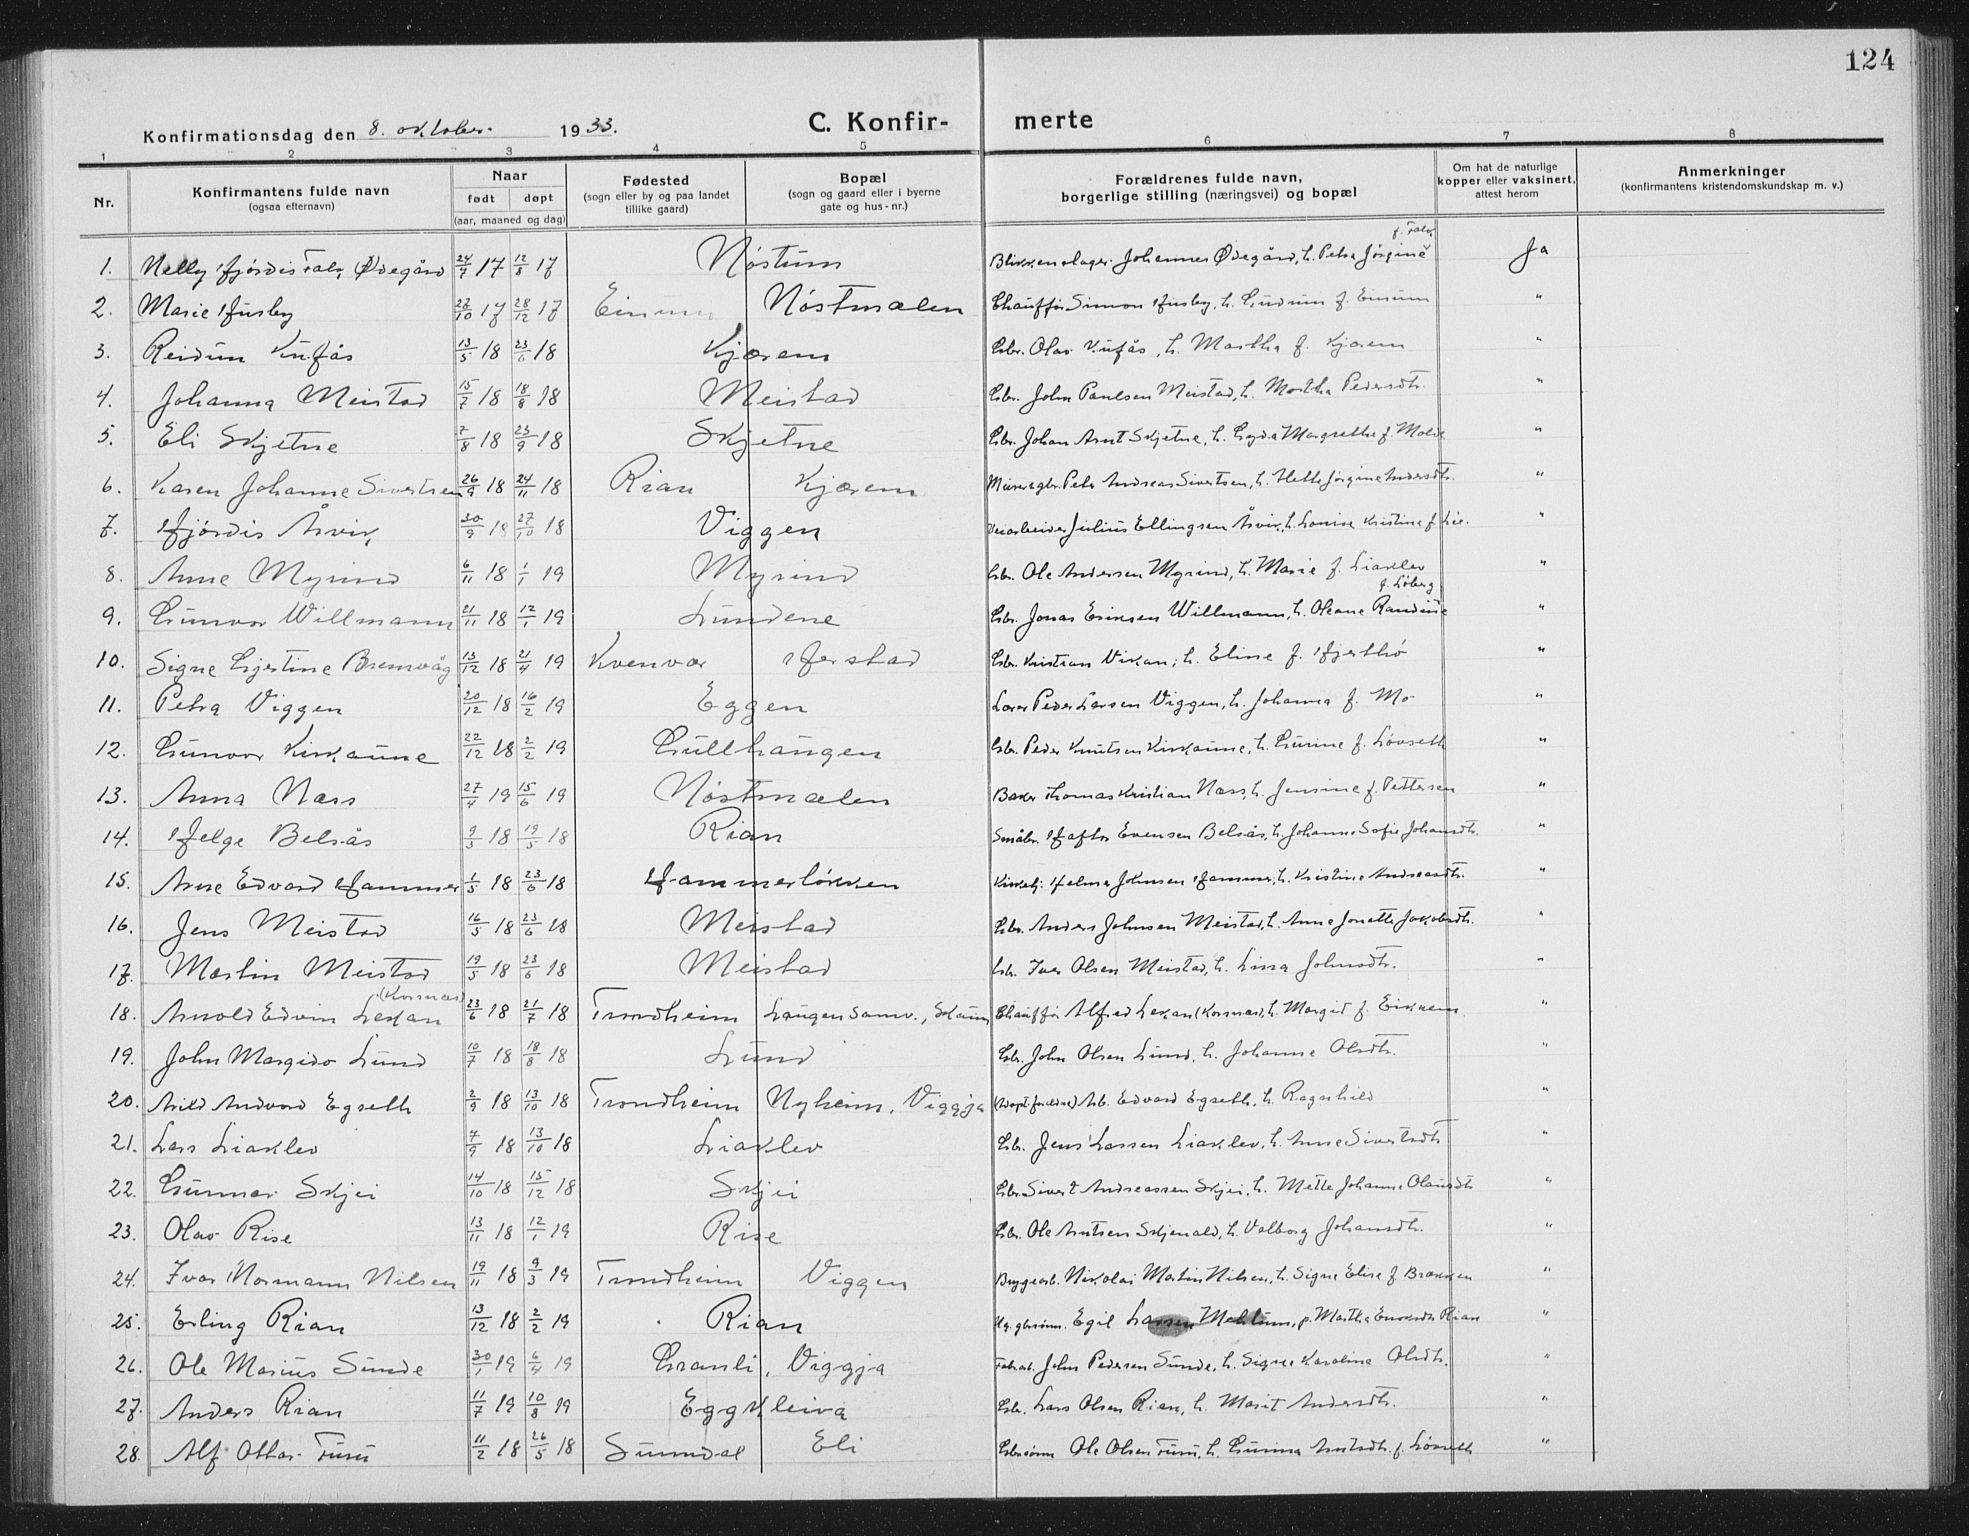 124
Konfirmationsdag den 8. oktober. 1933.
C. Konfirmerte
1 2 3 4 5 6 7 8
Nr.
Konfirmantens fulde navn
(ogsaa efternavn)
Naar
født døpt
(aar, maaned og dag)
Fødested
(sogn eller by og paa landet
tillike gaard)
Bopæl
(sogn og gaard eller i byerne
gate og hus-nr.)
Forældrenes fulde navn,
borgerlige stilling (næringsvei) og bopæl
Om hat de naturlige
kopper eller vaksinert,
attest herom
Anmerkninger
(konfirmantens kristendomskundskap m. v.)
f. Falk
1. Nelly Hjørdis Falk Ødegård 24/4 17 12/8 17 Nøstum Blikkenslager Johannes Ødegård, h. Petra Jørgine Ja
2. Marie Husby 23/10 17 28/12 17 Einum Nøstmælen Chauffør Simon Husby, h. Gudrun f. Einum "
3. Reidun Kufås 13/5 18 23/6 18 Kjørem Gbr. Olav Kufås, h. Martha f. Kjørem "
4. Johanna Meistad 15/7 18 18/8 18 Meistad Gbr. John Paulsen Meistad, h. Martha Pedersdtr. "
5. Eli Skjetne 7/8 18 23/9 18 Skjetne Gbr. Johan Arnt Skjetne, h. Gyda Margrethe f. Molde "
6. Karen Johanne Sivertsen 26/9 18 24/11 18 Rian Kjørem Peter Andreas Sivertsen, h. Jørgine Andersdtr. "
7. Hjørdis Åsvik 30/9 18 27/10 18 Viggen Veiarbeider Julius Ellingsen Åsvik, h. Louise Kristine f. Lie. "
8. Anne Myrind 6/11 18 1/1 19 Myrind Gbr. Ole Andersen Myrind, h. Marie f. Liaklev "
f. Løberg
9. Gunvor Willmann 21/11 18 12/1 19 Lundene Gbr. Jonas Eriksen Willmann, h. Oleane Randine "
10. Signe Gjertine Bremvåg 13/12 18 21/4 19 Kvenvær Herstad Gbr. Kristian Vikan, h. Eline f. Hjerthø "
11. Petra Viggen 20/12 18 16/2 19 Eggen Lærer Peder Larsen Viggen, h. Johanna f. Mo "
12. Gunvor Kirkaune 22/12 18 2/2 19 Gullhaugen Gbr. Peder Knutsen Kirkaune, h. Gurine f. Løvseth "
13. Anna Næss 27/4 19 15/6 19 Nøstmælen Baker Thomas Kristian Næss, h. Jensine f. Pettersen "
14. Helge Belsås 9/3 18 19/5 18 Rian Småbr. Haftor Evensen Belsås, h. Johanna Sofie Johansdtr. "
15. Arne Edvard Hammer 1/5 18 23/6 18 Hammerløkken Kirketj. Helmer Johnsen Hammer, h. Kristine Andreasdtr. "
16. Jens Meistad 16/5 18 23/6 18 Meistad Gbr. Anders Johnsen Meistad, h. Anne Jonette Jakobsdtr. "
17. Martin Meistad 19/5 18 23/6 18 Meistad Gbr. Iver Olsen Meistad, h. Lina Johnsdtr. "
(Korsnæs)
18. Arnold Edvin Lekan 23/6 18 21/7 18 Trondheim Laugen samv., Skaun Chauffør Alfred Lekan (Korsnæs), h. Margit f. Eiknem "
19. John Margido Lund 10/7 18 18/8 18 Lund Gbr. John Olsen Lund, h. Johanne Olsdtr. "
20. Arild Andvord Egseth 2/9 18 13/10 18 Trondheim Nyheim, Viggja (Adoptforeldre) Arb. Edvard Egseth, h. Ragnhild "
21. Lars Liaklev 7/9 18 13/10 18 Liaklev Gbr. Jens Larsen Liaklev, h. Anne Sivertsdtr. "
22. Gunnar Skjei 14/10 18 15/12 18 Skjei Gbr. Sivert Andreassen Skjei, h. Mette Johanne Olausdtr. "
23. Olav Rise 13/11 18 12/1 19 Rise Gbr. Ole Arntsen Skjenald, h. Valborg Johansdtr. "
24. Ivar Normann Nilsen 19/11 18 9/3 19 Trondheim Viggen Bryggearb. Nikolai Martin Nilsen, h. Signe Elise f. Brækken "
25. Erling Rian 13/12 18 2/2 19 Rian Ug. gbrsønn Egil Larsen Mehlum, p. Martha Rian "
26. Ole Marius Sunde 30/1 19 6/4 19 Granli, Viggja Fabrarb. John Pedersen Sunde, h. Signe Karoline Olsdtr. "
27. Anders Rian 11/7 19 10/8 19 Eggkleiva Gbr. Lars Olsen Rian, h. Marit Andersdtr. "
28. Alf Ottar Furu 11/2 18 26/5 18 Sunndal Eli Gbrsønn Ole Olsen Furu, h. Gurina Arntsdtr. f. Løvseth "